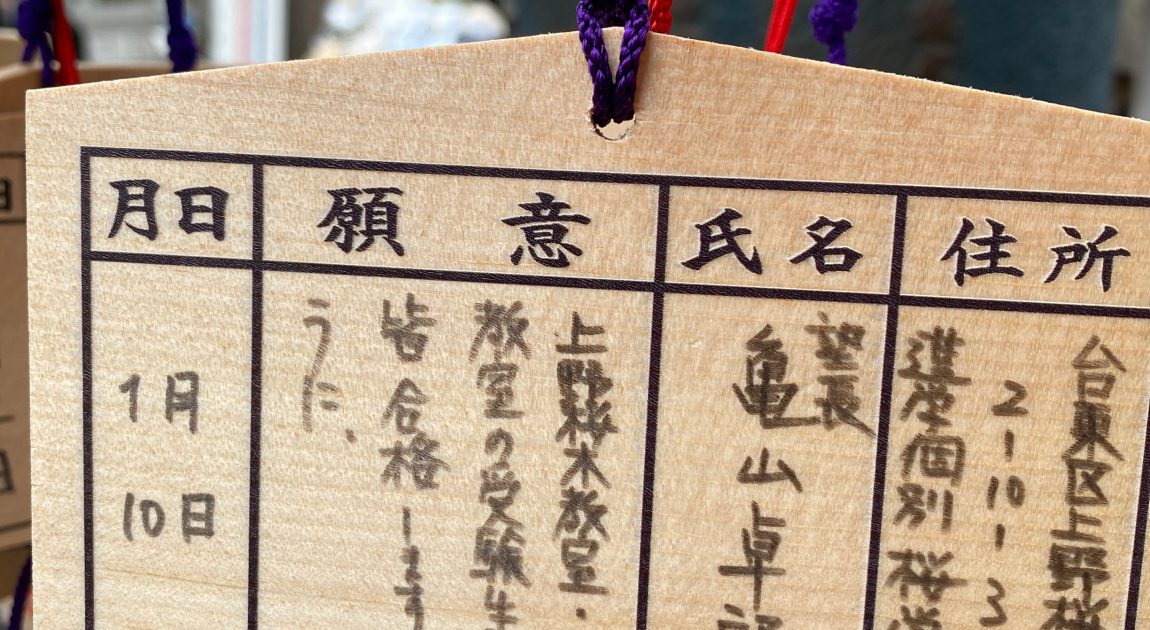 月日
願意
氏名
住所
1月
10日
上野桜木教室・
教室の受験生
皆合格します
うに、
室長
亀山卓
台東区上野桜
2-10-1
進学個別 桜